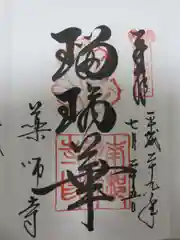 奉拝
平成二十九年
七月二十五日
瑠璃華
薬師寺